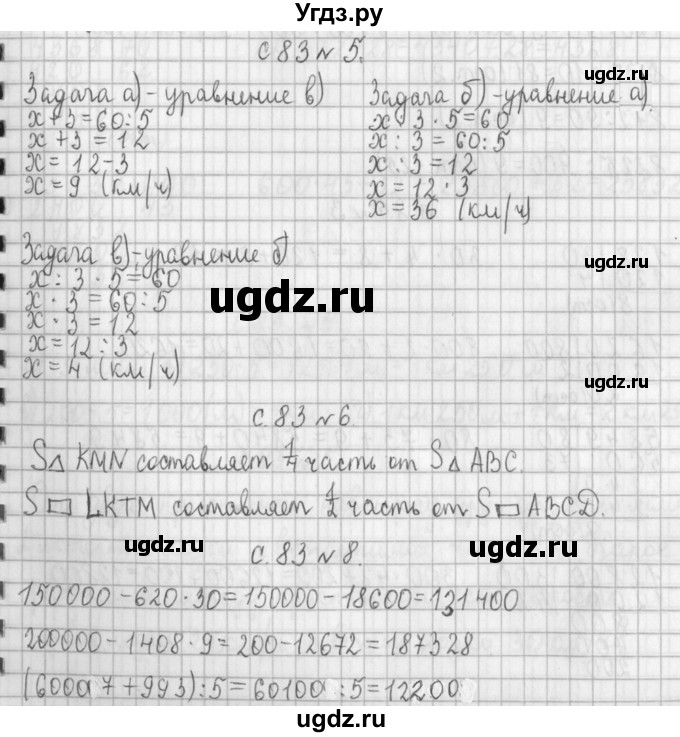 Угдз.ру
с 83 № 5.
Задача а) - уравнение в)
x+3=60:5
x+3=12
x=12-3
x=9 (км/ч)
Задача б) - уравнение а)
x : 3 · 5=60
x : 3 = 60:5
x : 3=12
x=12 · 3
x=36 (км/ч)
Задача в) - уравнение б)
x : 3 · 5 = 60
x · 3 = 60:5
x · 3 = 12
x=12:3
x= 4 (км/ч)
с. 83 № 6.
S△ KMN составляет 1/4 часть от S△ ABC.
S▭ LKTM составляет 1/2 часть от S▭ ABCD.
с. 83 № 8.
150000 - 620 · 30 = 150000 - 18600 = 131400
200000 - 1408 · 9 = 200-12672 = 187328
(60007 + 993) : 5 = 60100 : 5 = 12200
ugdz.ru
ugdz.ru
ugdz.ru
ugdz.ru
ugdz.ru
ugdz.ru
ugdz.ru
ugdz.ru